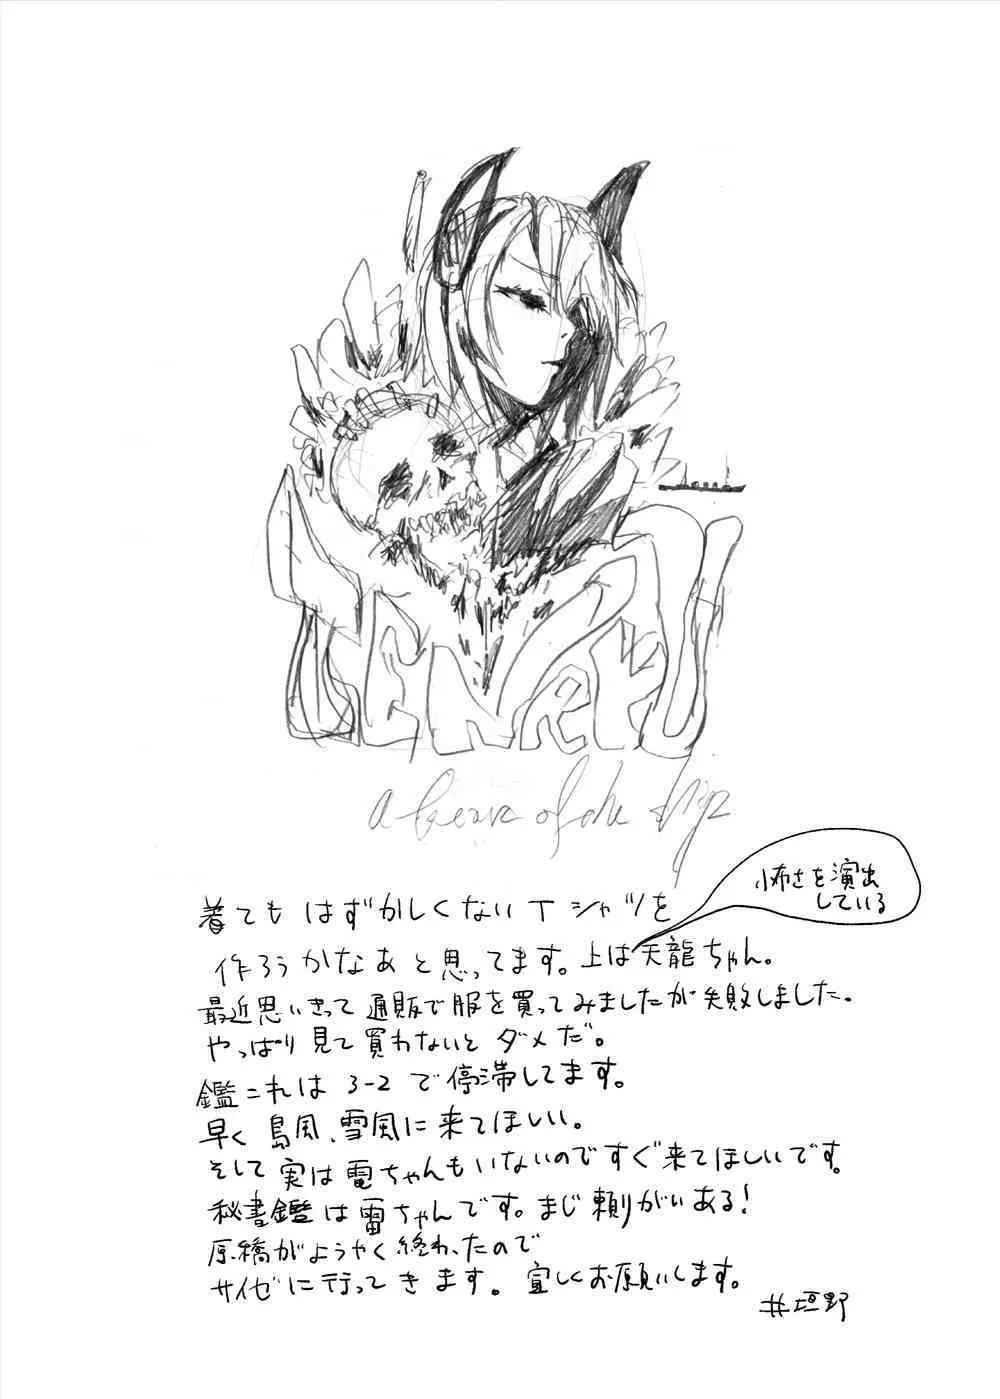 TENRYU
怖さを演出
している
着てもはずかしくないTシャツを
作ろうかなあと思ってます。上は天龍ちゃん。
最近思いきって通販で服を買ってみましたが失敗しました。
やっぱり見て買わないとダメだ。
鑑これは3-2で停滞してます。
早く島風、雪風に来てほしい。
そして実は電ちゃんもいないのですぐ来てほしいです。
秘書鑑は雷ちゃんです。まじ頼りがいある!
原稿がようやく終わったので
サイゼに行ってきます。宜しくお願いします。
井垣野